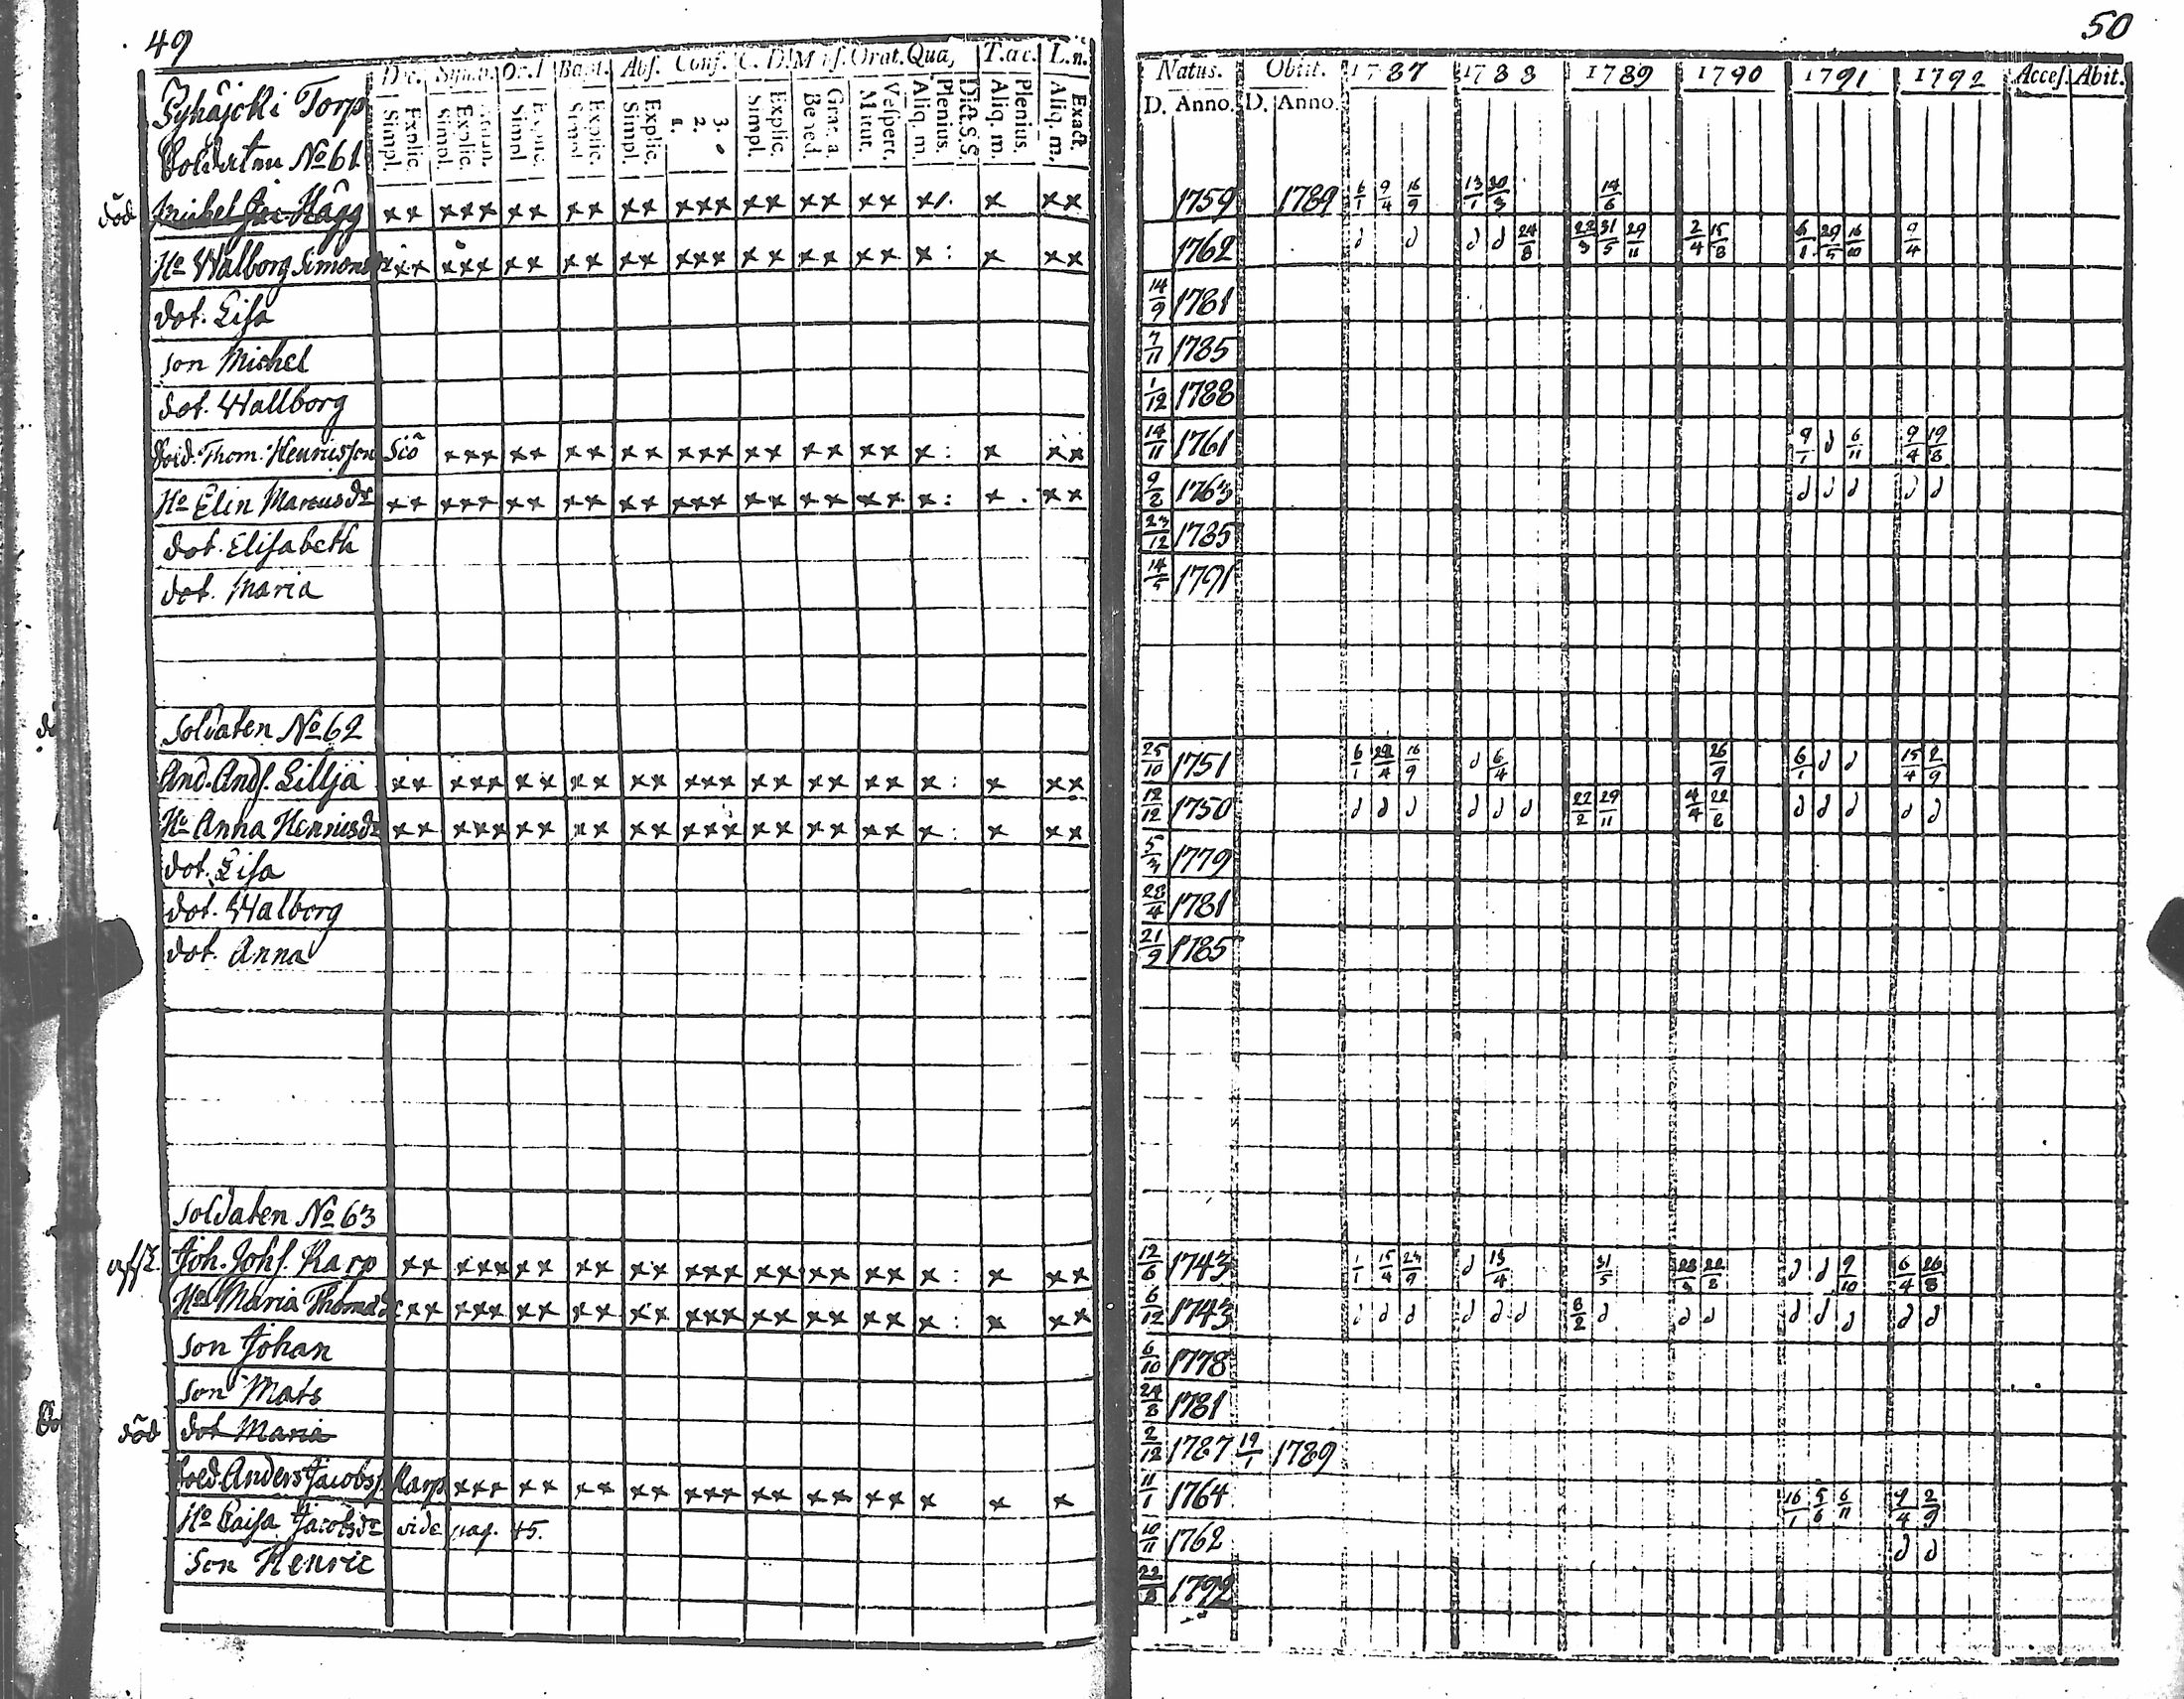 49
Dec. Symb. Or. D. Bapt. Abs. Conf. C. D. Mens. Orat. Quæ. T. œc. L. n.
Torp
Soldaten No 61
Explic. Simpl. Explic. Simpl. Explic. Simpl. Explic. Simpl. Explic. Simpl. 3. 2. 1. Explic. Simpl. Grat. a. Bened. Vespert. Matut. Dict. S. S. Plenius. Aliq. m. Plenius. Aliq. m. Exact. Aliq. m.
död Michel Jac. Hägg ×× ××× ×× ×× ×× ××× ×× ×× ×× ×/. × ××
Ho Walborg Simonsdr ×× ××× ×× ×× ×× ××× ×× ×× ×× × : × ××
dot. Lisa
son Michel
dot. Wallborg
Sold. Thom. Henricsson Siö ××× ×× ×× ×× ××× ×× ×× ×× × : × ××
Ho Elin Marcusdr ×× ××× ×× ×× ×× ××× ×× ×× ×× × : × ××
dot. Elisabeth
dot. Maria
Soldaten No 62
And. Ands. Lillja ×× ××× ×× ×× ×× ××× ×× ×× ×× × : × ××
Ho Anna Henricsdr ×× ××× ×× ×× ×× ××× ×× ×× ×× × : × ××
dot. Lisa
dot. Walborg
dot. Anna
Soldaten No 63
Joh. Johs. Karp ×× ××× ×× ×× ×× ××× ×× ×× ×× × : × ××
Ho Maria Thomasdr ×× ××× ×× ×× ×× ××× ×× ×× ×× × : × ××
son Johan
son Mats
död dot Maria
Sold. Anders Jacobss. Karp ××× ×× ×× ×× ××× ×× ×× ×× × × ×
Ho Caisa Jacobsdr vide pag. 45.
son Henric
50
Natus. Obiit. 1787 1788 1789 1790 1791 1792 Acces. Abit.
D. Anno. D. Anno.
1759 1789 6/1 9/4 16/9 13/1 30/3 14/6
1762 d d d d 24/8 22/3 31/5 29/11 2/4 15/8 6/1 29/5 16/10 9/4
14/9 1781
7/11 1785
1/12 1788
14/11 1761 9/1 d 6/11 9/4 19/8
9/2 1763 d d d d d
23/12 1785
14/5 1791
25/10 1751 6/1 16/9 d 6/4 26/9 6/1 d d 15/4 2/9
12/12 1750 d d d d d d 22/2 29/11 4/4 22/8 d d d d d
5/3 1779
28/4 1781
21/9 1785
12/6 1743 1/1 15/4 23/9 d 13/4 31/5 22/8 d d 9/10 6/4 26/8
6/12 1743 d d d d d d 8/2 d d d d d d d d
6/10 1778
24/8 1781
2/12 1787 19/1 1789
11/1 1764 16/1 5/6 6/11 9/4 2/9
10/11 1762 d d
22/8 1792